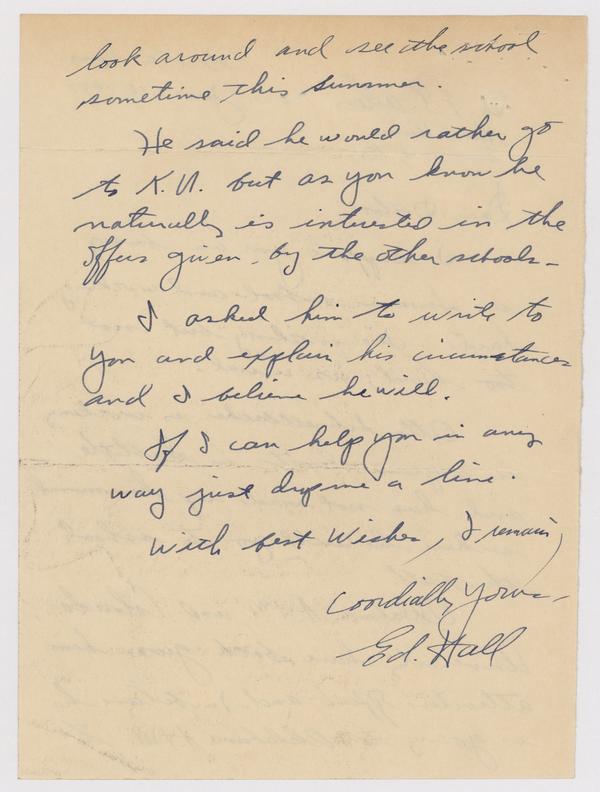 look around and see the school
sometime this summer.
He said he would rather go
to K.U. but as you know he
naturally is interested in the
offers given by the other schools-
I asked him to write to
you and explain his circumstances
and I believe he will.
If I can help you in any
way just drop me a line.
With best Wishes, I remain,
Cordially Yours-
Ed. Hall